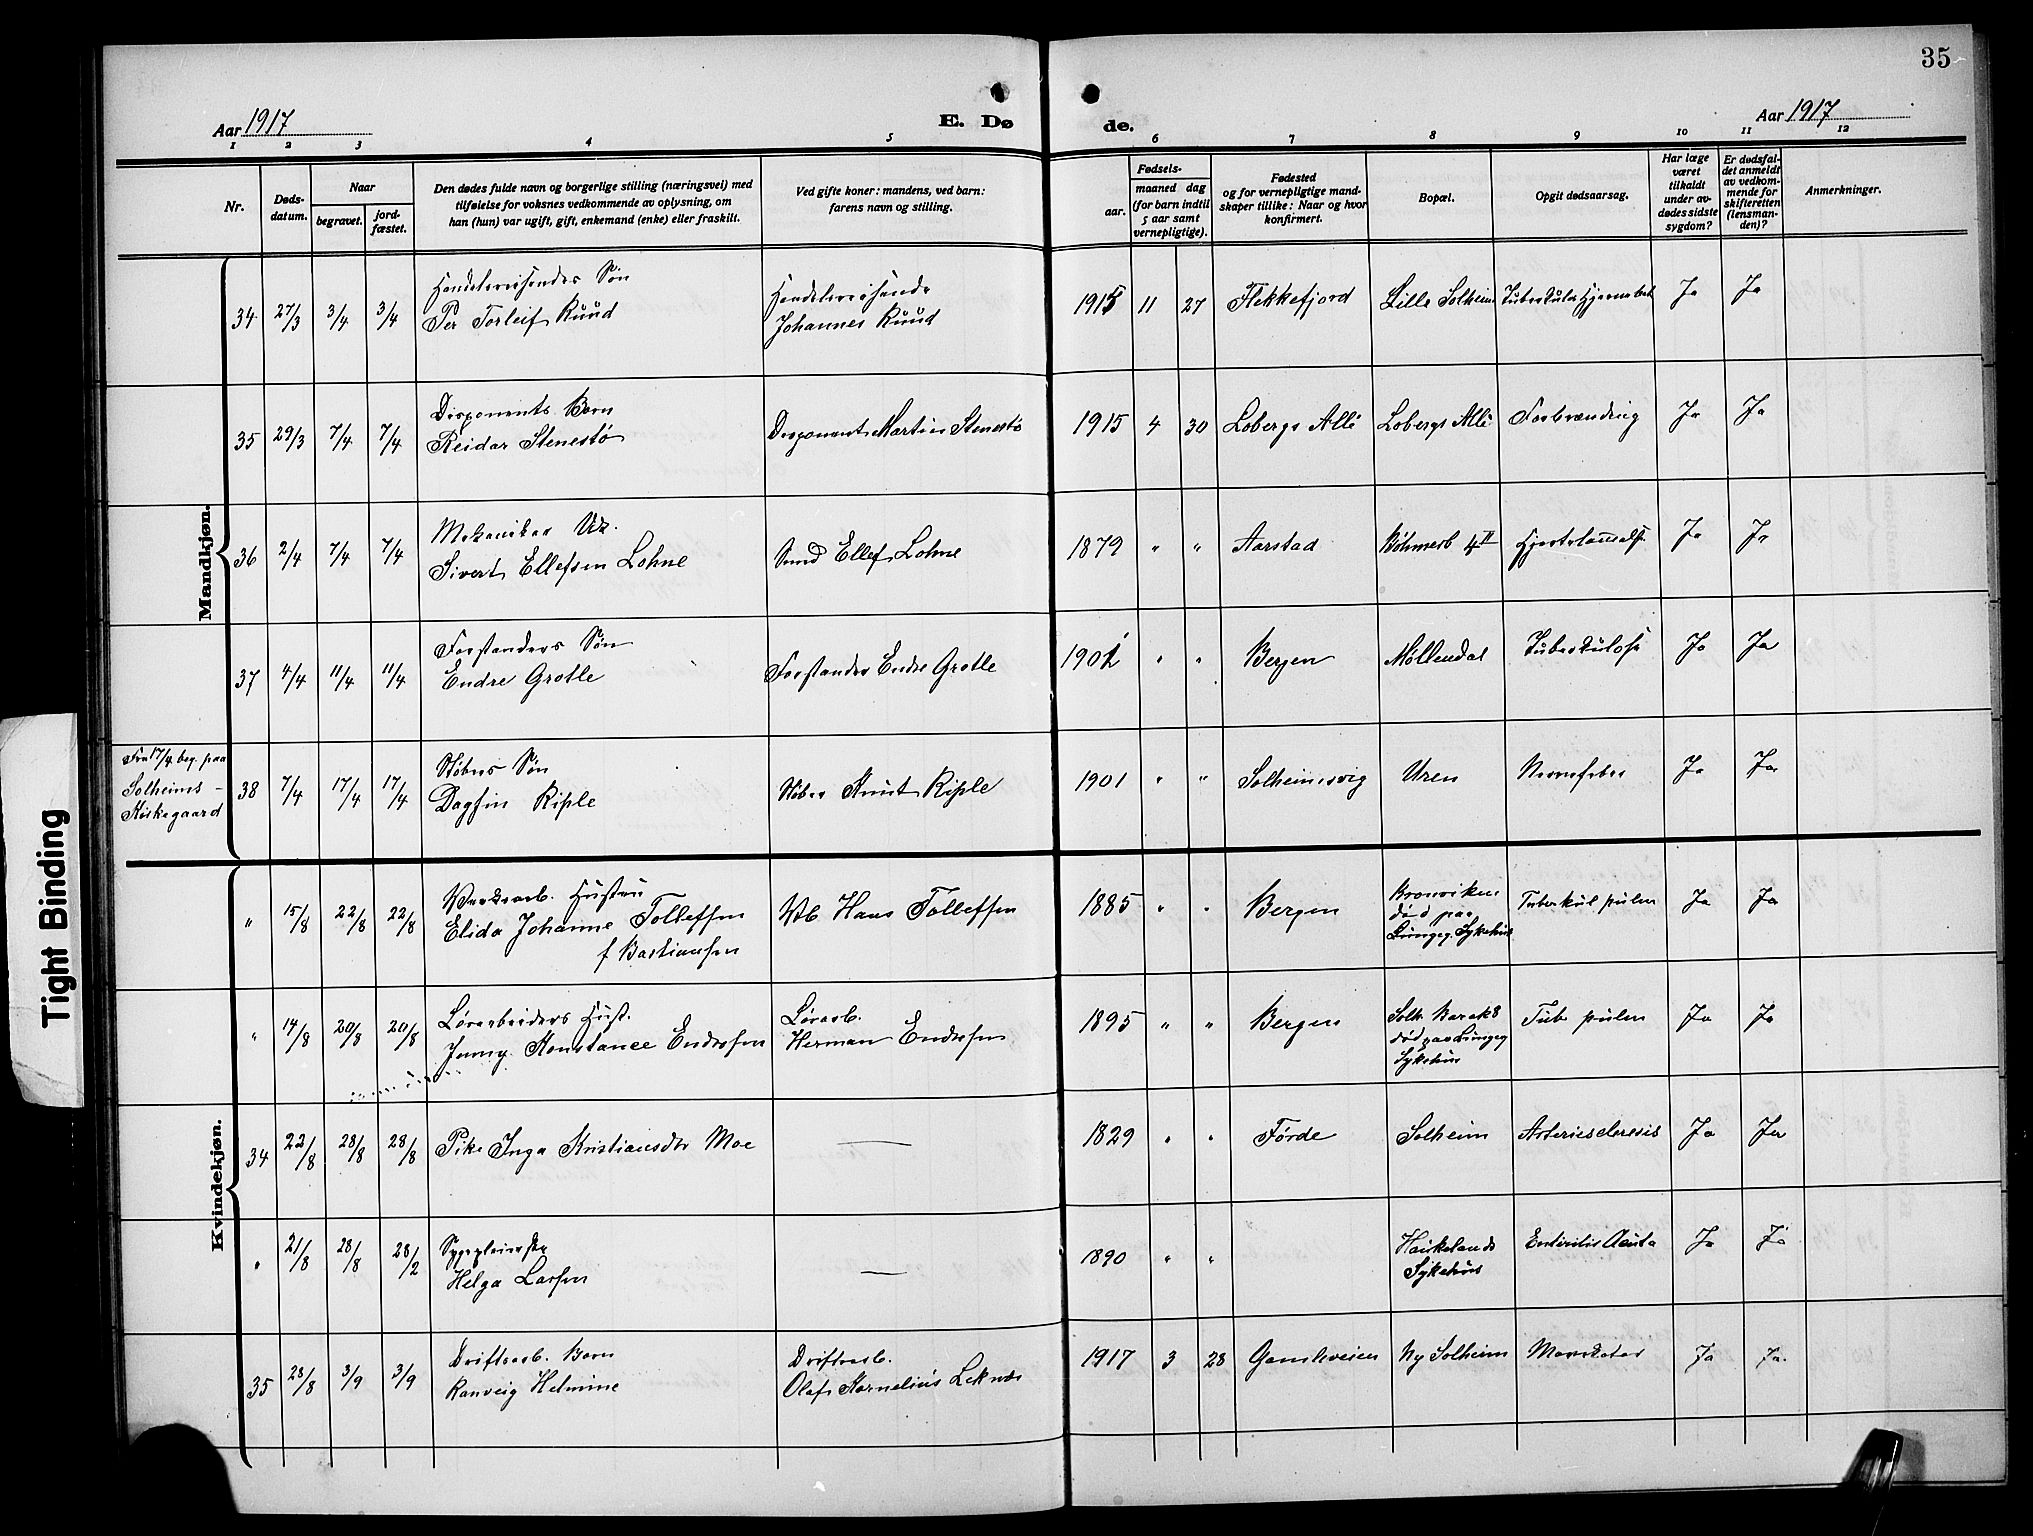 35
Aar 1917
E. Dø
de.
Aar 1917
1 2 3 4 5 6 7 8 9 10 11 12
Nr.
Døds-
datum.
Naar
begravet.
jord-
fæstet.
Den dødes fulde navn og borgerlige stilling (næringsvei) med
tilføielse for voksnes vedkommende av oplysning, om
han (hun) var ugift, gift, enkemand (enke) eller fraskilt.
Ved gifte koner: mandens, ved barn:
farens navn og stilling.
Fødsels-
aar.
maaned dag
(for barn indtil
5 aar samt
vernepligtige).
Fødested
og for vernepligtige mand-
skaper tillike: Naar og hvor
konfirmert.
Bopæl.
Opgit dødsaarsag.
Har læge
været
tilkaldt
under av-
dødes sidste
sygdom?
Er dødsfal-
det anmeldt
av vedkom-
mende for
skifteretten
(lensman-
den)?
Anmerkninger.
Mandkjøn.
Handelsreisendes Søn
34 27/3 3/4 3/4 Per Torleif Ruud
Handelsreisende
Johannes Ruud
1915 11 27 Flekkefjord Lille Solheim Ja Ja
Disponents Barn
35 29/3 7/4 7/4 Reidar Stenestø
Disponent Martin Stenestø
1915 4 30 Lobergs Allé Lobergs Allé Forbrænding Ja Ja
Mekaniker
36 2/4 7/4 7/4 Sivert Ellefsen Lohne
Ellef Lohne
1879 " " Aarstad 4 II Ja Ja
Forstanders Søn
37 4/4 11/4 11/4 Endre Grotle
Forstander Endre Grotle
1901 " " Bergen Møllendal Tuberkulose Ja Ja
Fra 17/4 beg. paa
Solheims -
Kirkegaard
Støbers Søn
38 7/4 17/4 17/4 Dagfin Riple
Støber Knut Riple
1901 " " Solheimsvig Uren Nervefeber Ja Ja
Kvindekjøn.
Verksarb. Hustru
" 15/8 22/8 22/8 Elida Johanne Tollefsen
f Bastiansen
Vb Hans Tollefsen
1885 " " Bergen
død paa
Lungeg. Sykehus
Tuberkul pulm Ja Ja
Løsarbeiders Hust.
" 14/8 20/8 20/8 Jenny Konstance Endresen
Løsarb.
Herman Endresen
1895 " " Bergen
Solh. Barak 8
død paa Lungeg
Sykehus
Tube pulm Ja Ja
34 22/8 28/8 28/8 Pike Inga Kristiansdtr Moe
1829 " " Førde Solheim Arteriesclerosis Ja Ja
Sygepleierske
" 21/8 28/8 28/2 Helga Larsen
1890 " "
Haukelands
Sykehus
Enteritis Acuta Ja Ja
Driftsarb. Barn
35 28/8 3/9 3/9 Ranveig Helmine
Driftsarb.
Olaf Kornelius Leknes
1917 3 28 Gamleveien Ny Solheim Ja Ja
Tight Binding